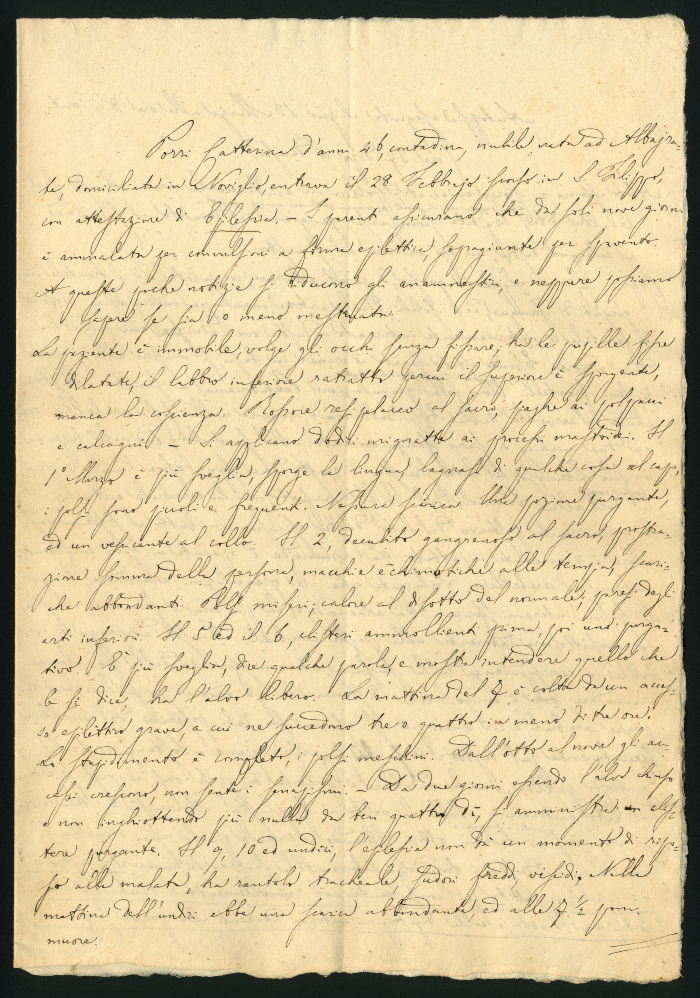 Porri Catterina d'anni 46, contadina, nubile, nata ad Albaira-
te, domiciliata in Noviglio, entrava il 28 Febbrajo scorso in S. Filippo,
con attestazione di Epilessia. – I parenti assicurano che da soli nove giorni
è ammalata per convulsioni a forma epilettica, sopragiunte per spavento.
A queste poche notizie si riducono gli anamnestici, e neppure possiamo
sapere se sia o meno mestruata.
La paziente è immobile, volge gli occhi senza fissare; ha le pupille fisse
dilatate, il labbro inferiore ratratto perciò il superiore è sporgente,
manca la coscienza. Rossore al sacro, piaghe ai polpacci
e calcagni – Si applicano dodici mignatte ai processi mastoidei. Il
1° Marzo è più sveglia, sporge la lingua, lagnasi di qualche cosa al capo,
i polsi sono piccoli e frequenti. Nessuna scarica. Una pozione purgante,
ed un vescicante al collo. Il 2, decubito gangrenoso al sacro, prostra-
zione somma della persona, macchie echimotiche alle tempia, scari-
che abbondanti. Polsi miseri; calore al disotto del normale; paresi degli
arti inferiori. Il 5 ed il 6, clisteri ammollienti prima, poi uno purga-
tivo. È più sveglia, dice qualche parola, e mostra intendere quello che
le si dice, ha l'alvo libero. La mattina del 7 è colta da un acces-
so epilettico grave, a cui ne succedono tre o quattro in meno di tre ore.
Lo stupidimento è completo, i polsi meschini. Dall'otto al nove gli ac-
cessi crescono, non sente i senapismi. – Da due giorni essendo l'alvo chiuso
e non inghiottendo più nulla da ben quattro dì, si amministra clis-
tere purgante. Il 9, 10 ed undici, l'epilessia non dà un momento di ripo-
so alla malata, ha rantolo tracheale, sudori freddi viscidi. Nella
mattina dell'undici ebbe una scarica abbondante, ed alle 7 ½ pom.
muore.